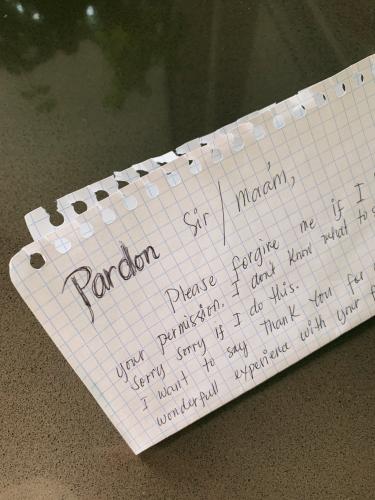 Pardon Sir / Maám,
Please forgive me if I
your permission. I don't know what to
sorry sorry if I do this.
I want to say thank you for
wonderfull experience with your